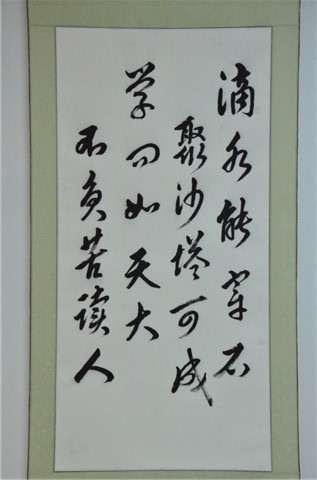 滴水能穿石
聚沙塔可成
学问如天大
不负苦读人